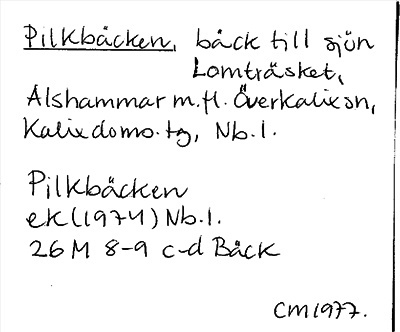 Pilkbäcken, bäck till sjön
Lomträsket,
Alshammar m.fl. Överkalix sn,
Kalix doms. tg, Nb. l.
Pilkbäcken
ek (1974) Nb. l.
26 M 8-9 c-d Bäck
CM 1977.